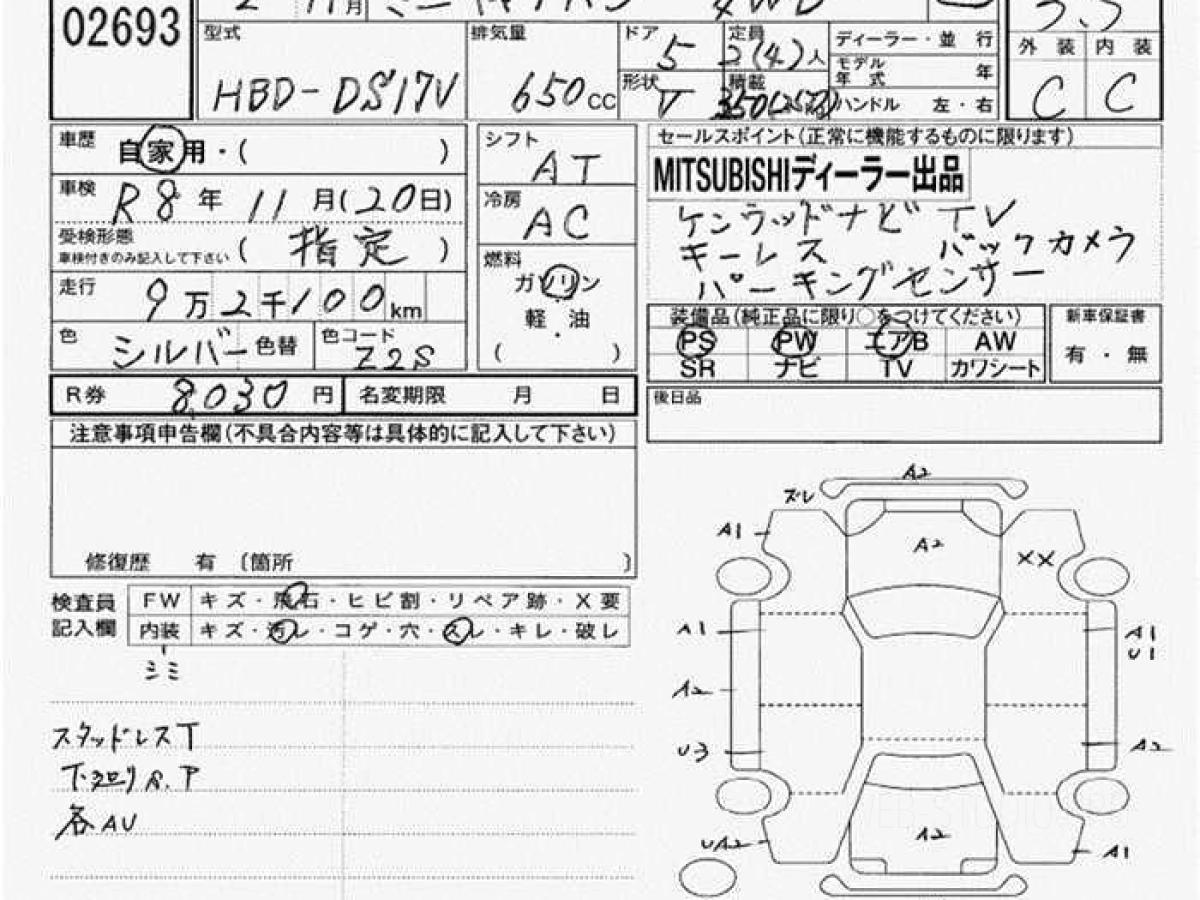 02693
2 11月 ミニキャブバン 4WD 3.5
型式 HBD-DS17V 排気量 650cc ドア 5 定員 2(4)人 ディーラー・並 行
形状 V 積載 350(250) モデル年式 年
ハンドル 左・右
外装 内装
C C
車歴 自家用・( )
車検 R8年11月(20日)
受検形態
車検付きのみ記入して下さい ( 指定 )
走行 9万2千100km
色 シルバー 色替 色コード Z2S
シフト AT
冷房 AC
燃料
ガソリン
軽・油
( )
セールスポイント(正常に機能するものに限ります)
MITSUBISHIディーラー出品
ケンウッドナビ TV
キーレス バックカメラ
パーキングセンサー
装備品(純正品に限り○をつけてください)
PS PW エアB AW
SR ナビ TV カワシート
新車保証書
有・無
R券 8,030円 名変期限 月 日
後日品
注意事項申告欄(不具合内容等は具体的に記入して下さい)
修復歴 有 〔箇所 〕
検査員記入欄
FW キズ・飛石・ヒビ割・リペア跡・X要
内装 キズ・汚レ・コゲ・穴・スレ・キレ・破レ
シミ
スタッドレスT
下廻りS.P
各AU
A2
ズレ
A1
A2
XX
A1
A1
U1
A2
U3
A2
UA2
A2
A1